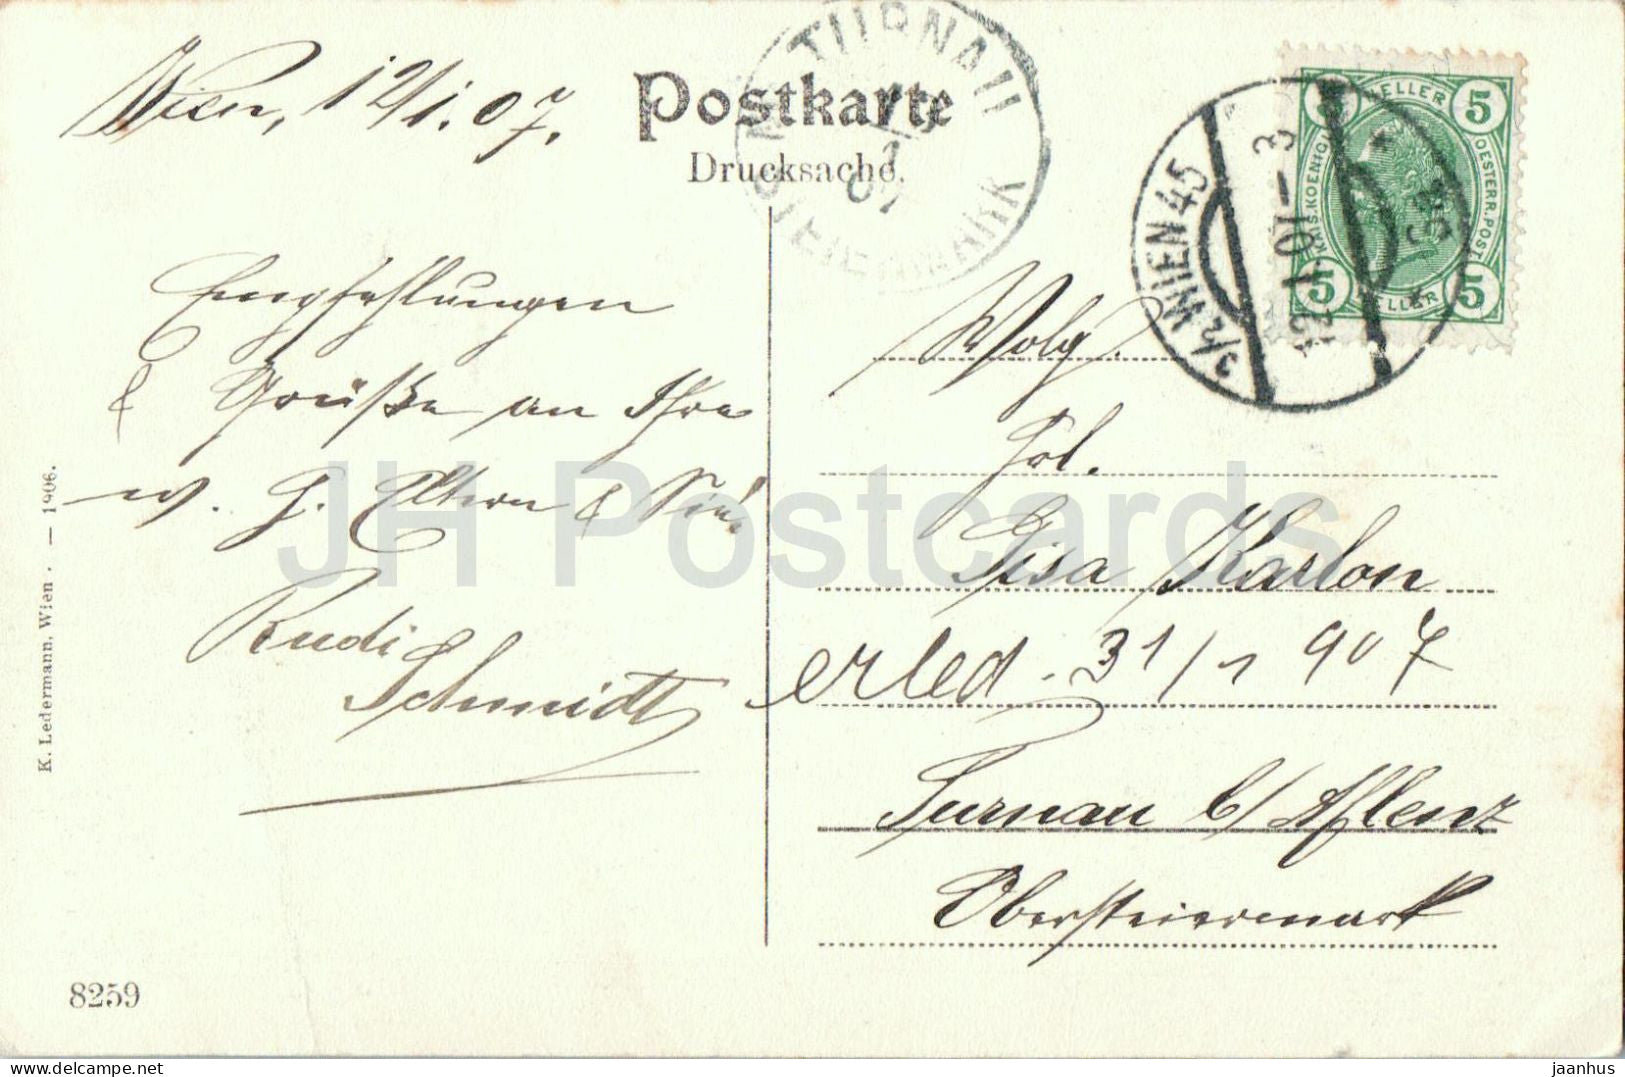 Wien, 12/1. 07.
Postkarte
Drucksache.
TURNAU
STEIERMARK
07
3/2 WIEN 45
12.1.07-3
5 HELLER 5
KAIS. KOENIGL. OESTERR. POST
5 HELLER 5
Empfehlungen
& Grüße an Ihre
w. G. Eltern & Sie
Rudi
Schmidt
Wolg.
Frl.
Gisa Karlon
erled. 31/1 907
Turnau b/ Aflenz
Obersteiermark
K. Ledermann, Wien. — 1906.
8259
JH Postcards
delcampe.net
jaanhus